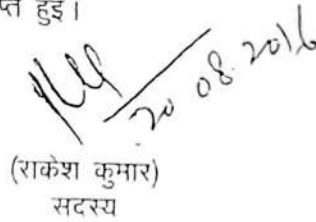 प्त हुई।
20 08.2016
(राकेश कुमार)
सदस्य